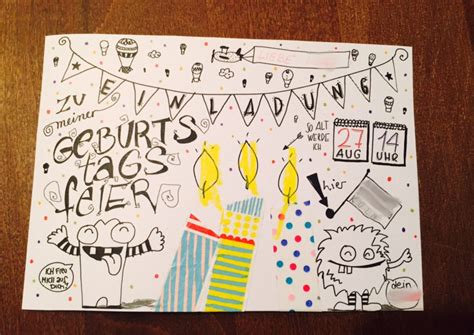 LIEBE
EINLADUNG
ZU
meiner
GEBURTS
tAGS
fEIER
SO ALT
WERDE
ICH
27
AUG
14
UHR
hier
ICH FREU
MICH AUF
DICH
dein